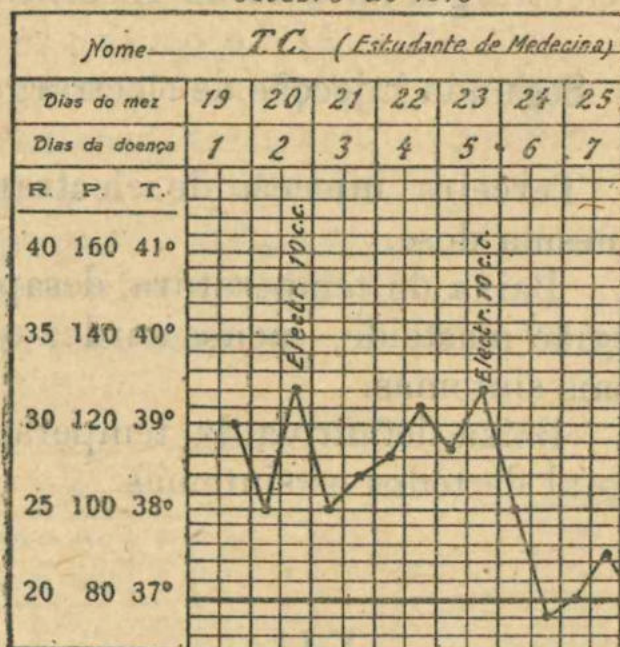 Nome T.C. (Estudante de Medecina)
Dias do mez 19 20 21 22 23 24 25
Dias da doença 1 2 3 4 5 6 7
R. P. T.
40 160 41º
35 140 40º
30 120 39º
25 100 38º
20 80 37º
Electr. 10 c.c.
Electr. 10 c.c.